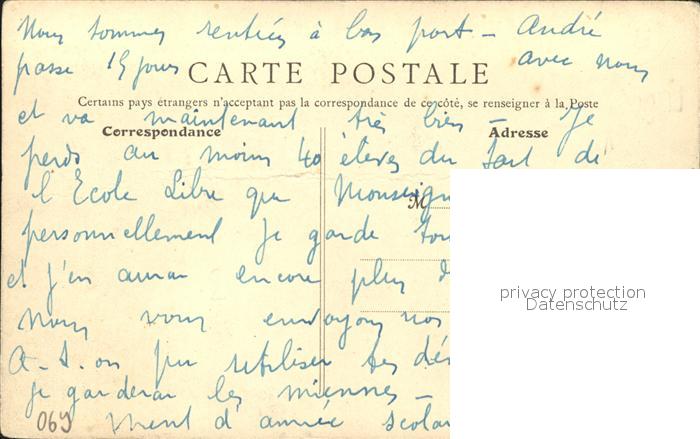 Nous sommes rentrés à bon port - André
passe 15 jours avec nous
CARTE POSTALE
Certains pays étrangers n'acceptant pas la correspondance de ce côté, se renseigner à la Poste
et va maintenant très bien - Je
Correspondance
Adresse
perds au moins 40 élèves du fait de
l'Ecole Libre que
M
personnellement Je garde
et j'en aurai encore plus
privacy protection
Datenschutz
nous vous envoyons nos
A-t-on pu utiliser les
je garderai les miennes -
069
d'année